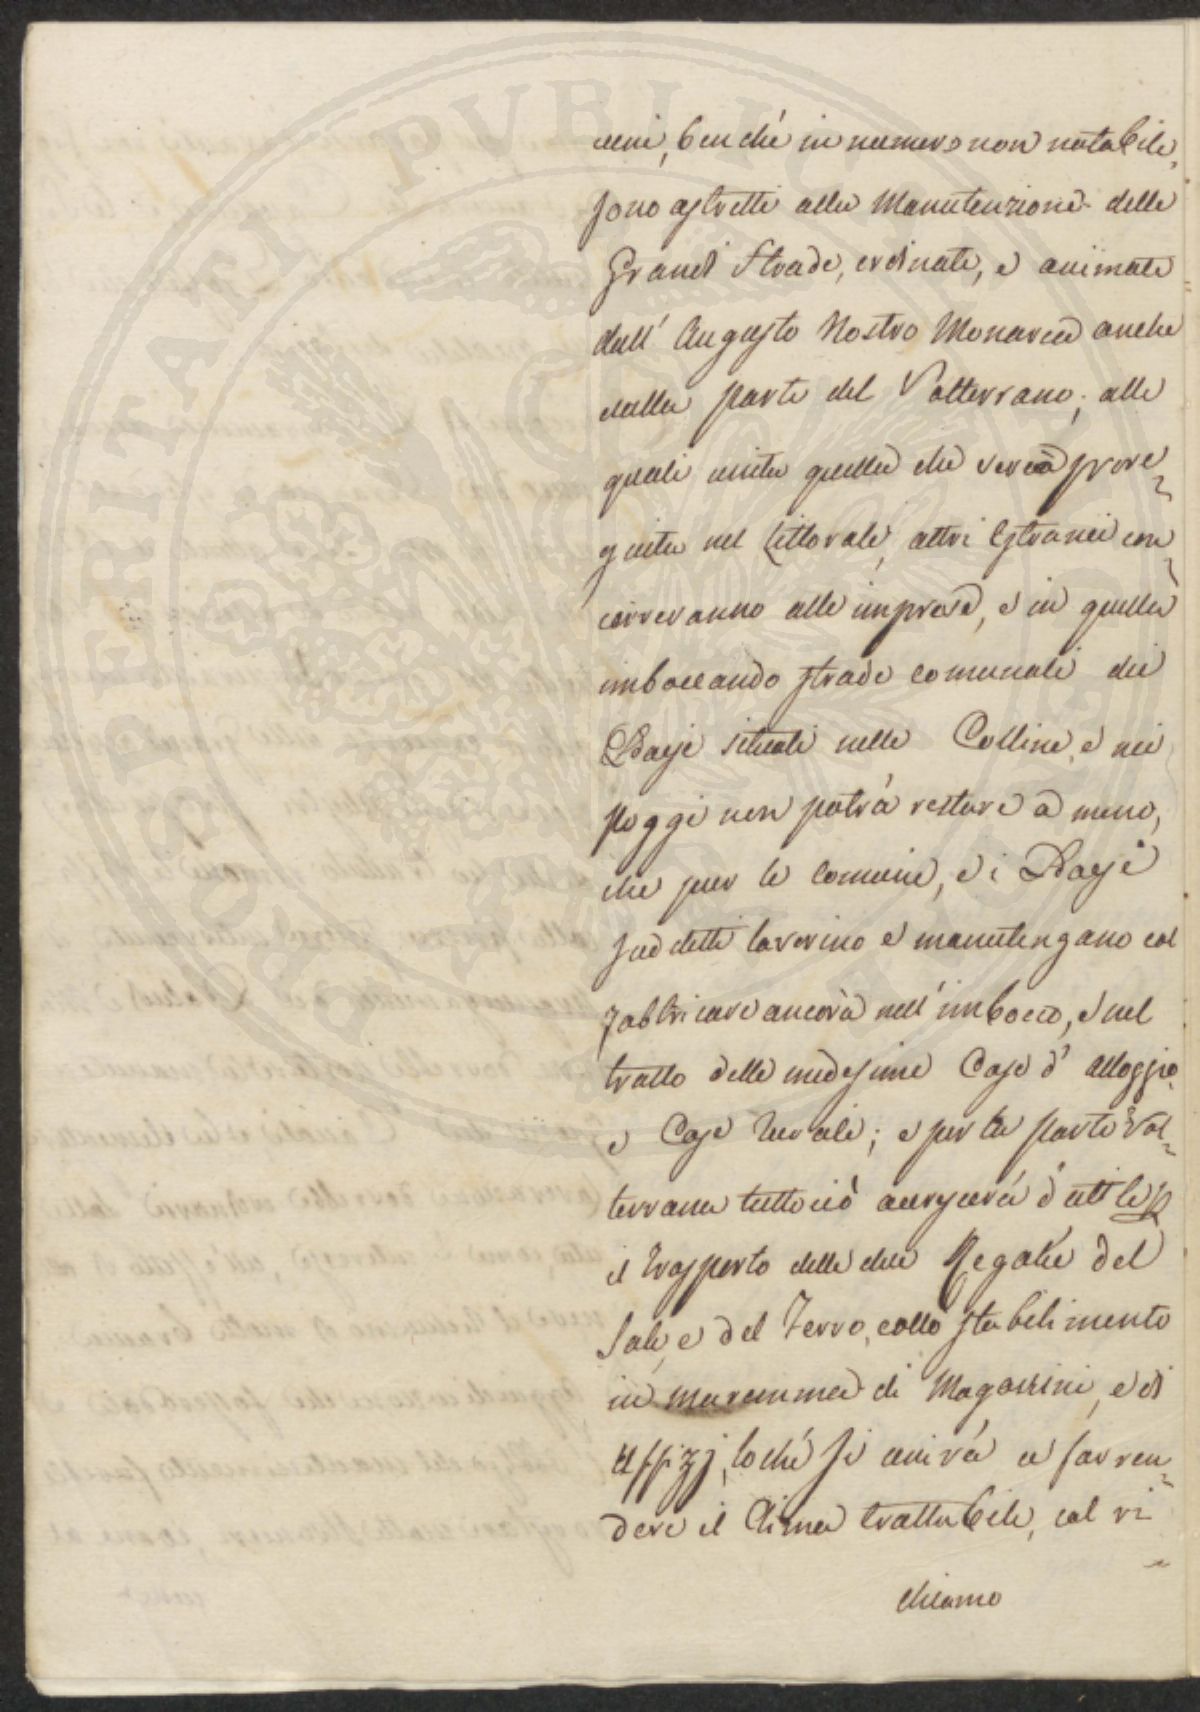 cuni, benché in numero non notabile,
sono astretti alla Manutenzione delle
Grandi Strade, ordinate, e animate
dall' Augusto Nostro Monarca anche
dalla parte del Volterrano; alle
quali unita quella che verrà prose¬
guita nel Littorale, altri Estranei con¬
correranno alle imprese, e in quella
imboccando strade comunali dei
Paesi situati nelle Colline, e nei
poggi non potrà restare a meno,
che per le comune, e i Paesi
suddetti lavorino e manutengano col
fabbricare ancora nell' imbocco, e nel
tratto delle medesime Case d' alloggio
e Case Rurali; e per la parte Vol¬
terrana tuttociò accrescerà d' utile
il trasporto delle due Regalie del
Sale, e del Ferro, collo stabilimento
in maremma di Magazzini, e di
Uffizj, loché si unirà a far ren¬
dere il Clima trattabile, col ri¬
chiamo
PROSPERITATI PUBLICAE